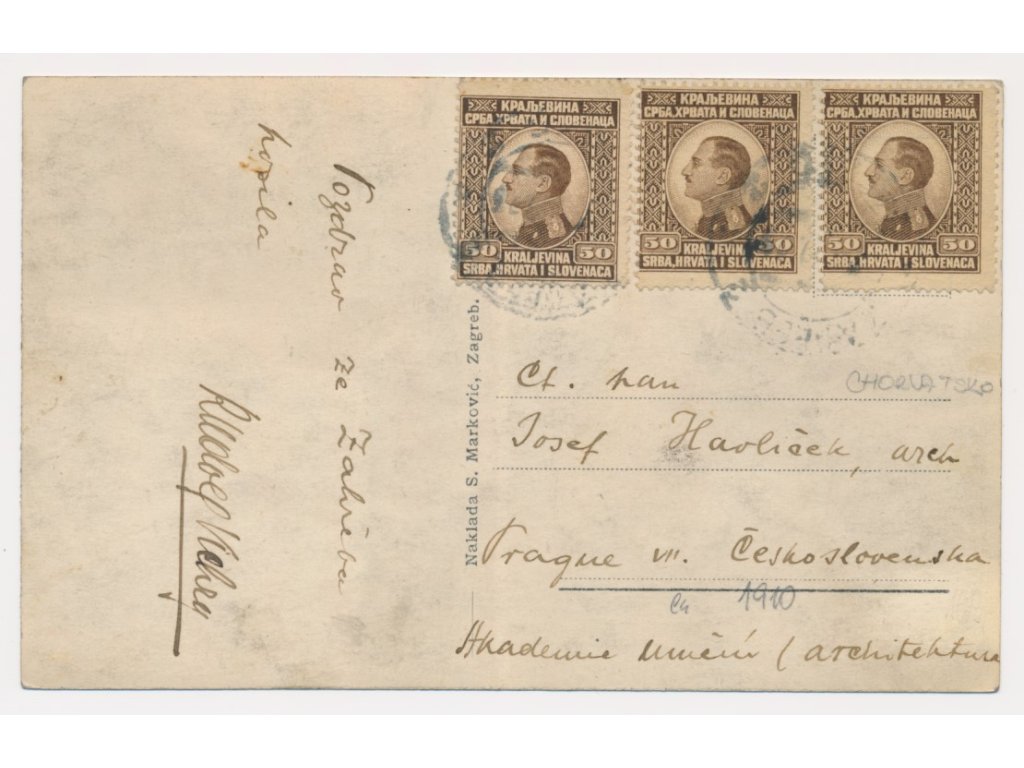 Pozdrav ze Zahřeba
КРАЉЕВИНА
СРБА, ХРВАТА И СЛОВЕНАЦА
50 50
KRALJEVINA
SRBA, HRVATA I SLOVENACA
КРАЉЕВИНА
СРБА, ХРВАТА И СЛОВЕНАЦА
50 50
KRALJEVINA
SRBA, HRVATA I SLOVENACA
КРАЉЕВИНА
СРБА, ХРВАТА И СЛОВЕНАЦА
50 50
KRALJEVINA
SRBA, HRVATA I SLOVENACA
Naklada S. Marković, Zagreb.
CHORVATSKO
Ct. pan
Josef Havlíček, arch
Prague VII. Československa
ca 1910
Akademie umění / architektura